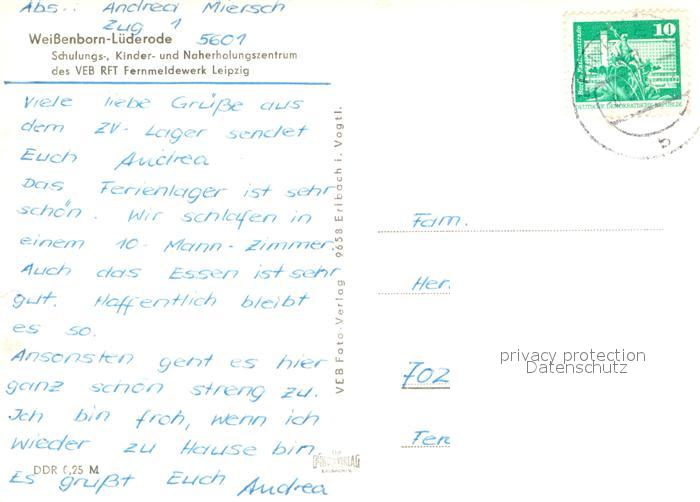 Abs.: Andrea Miersch
Zug 1
Weißenborn-Lüderode 5601
Schulungs-, Kinder- und Naherholungszentrum
des VEB RFT Fernmeldewerk Leipzig
Viele liebe Grüße aus
dem ZV-Lager sendet
Euch Andrea
Das Ferienlager ist sehr
schön. Wir schlafen in
einem 10-Mann-Zimmer.
Auch das Essen ist sehr
gut. Haffentlich bleibt
es so.
Ansonsten geht es hier
ganz schön streng zu.
Ich bin froh, wenn ich
wieder zu Hause bin.
Es grüßt Euch Andrea
DDR 0,25 M
VEB Foto-Verlag 9658 Erlbach i. Vogtl.
10
DEUTSCHE DEMOKRATISCHE REPUBLIK
Fam.
Her
702
Fer
privacy protection
Datenschutz